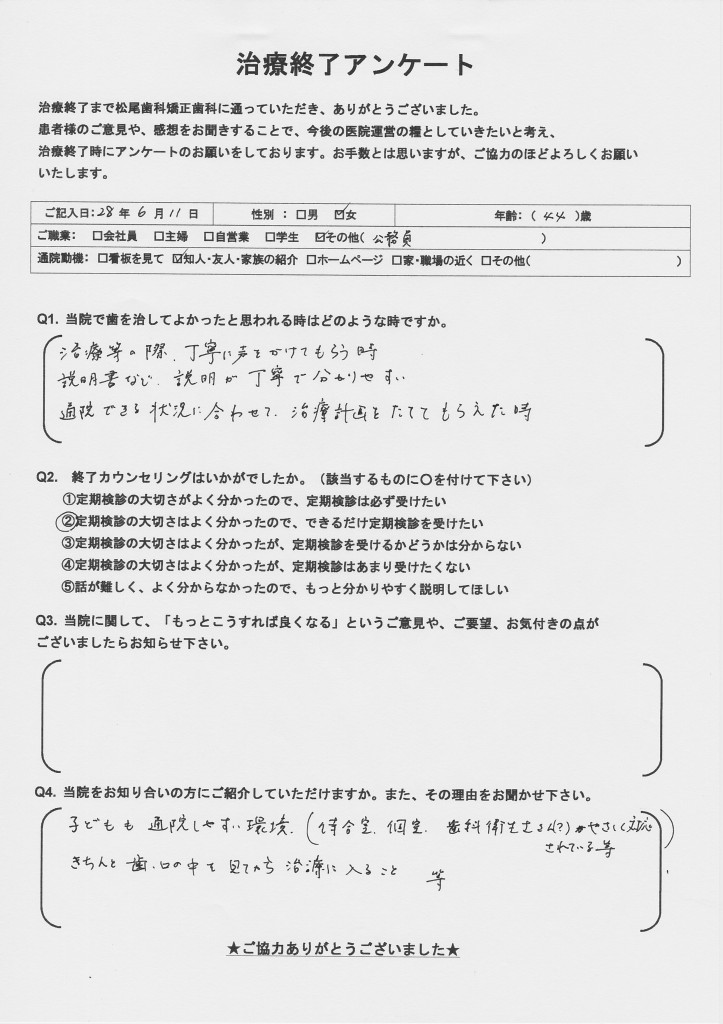 治療終了アンケート
治療終了まで松尾歯科矯正歯科に通っていただき、ありがとうございました。
患者様のご意見や、感想をお聞きすることで、今後の医院運営の糧としていきたいと考え、
治療終了時にアンケートのお願いをしております。お手数とは思いますが、ご協力のほどよろしくお願い
いたします。
ご記入日:28年 6月 11日 性別 : □男 ☑女 年齢:( 44 )歳
ご職業: □会社員 □主婦 □自営業 □学生 ☑その他( 公務員 )
通院動機: □看板を見て ☑知人・友人・家族の紹介 □ホームページ □家・職場の近く □その他( )
Q1. 当院で歯を治してよかったと思われる時はどのような時ですか。
治療等の際、丁寧に声をかけてもらう時
説明書など、説明が丁寧で分かりやすい
通院できる状況に合わせて、治療計画をたててもらえた時
Q2. 終了カウンセリングはいかがでしたか。(該当するものに〇を付けて下さい)
①定期検診の大切さがよく分かったので、定期検診は必ず受けたい
②定期検診の大切さはよく分かったので、できるだけ定期検診を受けたい
③定期検診の大切さはよく分かったが、定期検診を受けるかどうかは分からない
④定期検診の大切さはよく分かったが、定期検診はあまり受けたくない
⑤話が難しく、よく分からなかったので、もっと分かりやすく説明してほしい
Q3. 当院に関して、「もっとこうすれば良くなる」というご意見や、ご要望、お気付きの点が
ございましたらお知らせ下さい。
Q4. 当院をお知り合いの方にご紹介していただけますか。また、その理由をお聞かせ下さい。
子どもも通院しやすい環境、(待合室、個室、歯科衛生士さん(?)がやさしく対応
されている等)
きちんと歯、口の中を見てから治療に入ること 等
★ご協力ありがとうございました★